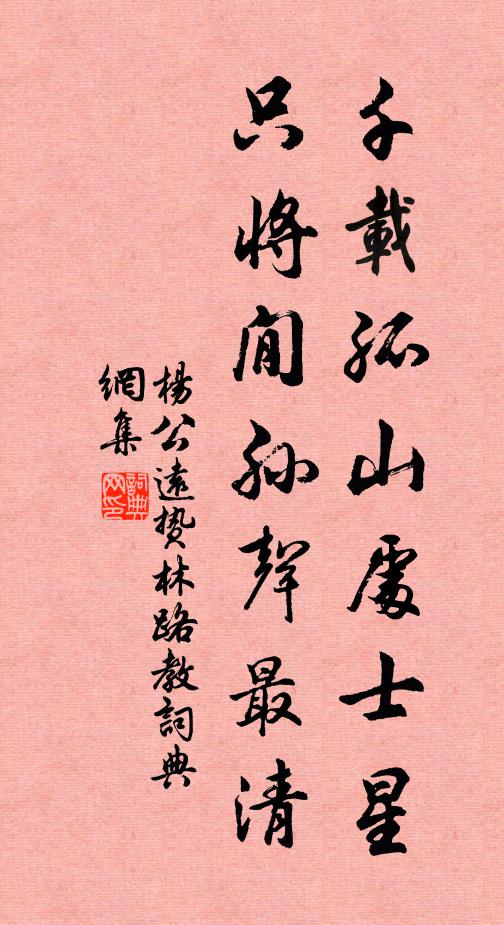 千載孤山處士星
只將閒孫聲最清
楊公遠贄林路教詞典
網集
詞典
网印